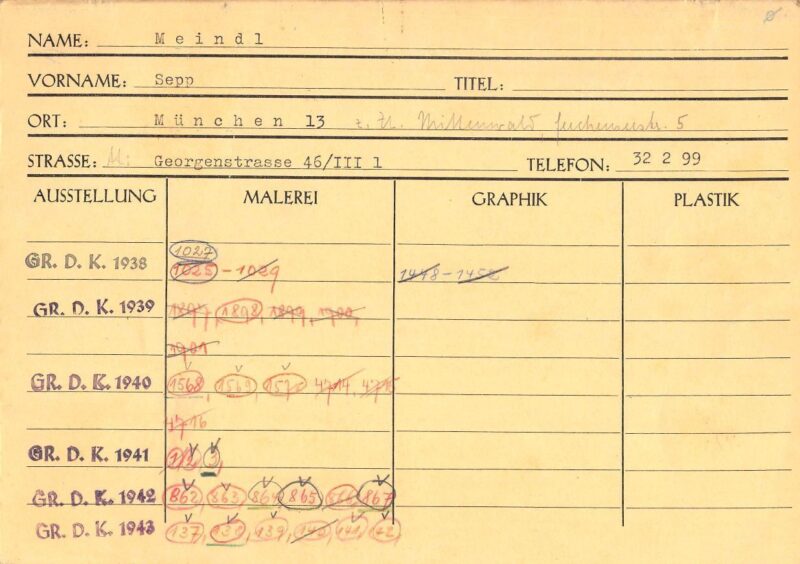 NAME: Meindl
VORNAME: Sepp TITEL:
ORT: München 13 z. Zt. Mittenwald, 5
STRASSE: Georgenstrasse 46/III l TELEFON: 32 2 99
AUSSTELLUNG MALEREI GRAPHIK PLASTIK
1027
GR. D. K. 1938 1025 - 1029 1448 - 1452
GR. D. K. 1939 1897, 1898, 1899, 1900,
1901
GR. D. K. 1940 1568, 1569, 1570 4714, 4715
4716
GR. D. K. 1941
GR. D. K. 1942 862, 863, 864, 865, 866, 867
GR. D. K. 1943 137, 138, 139, 140, 141, 142